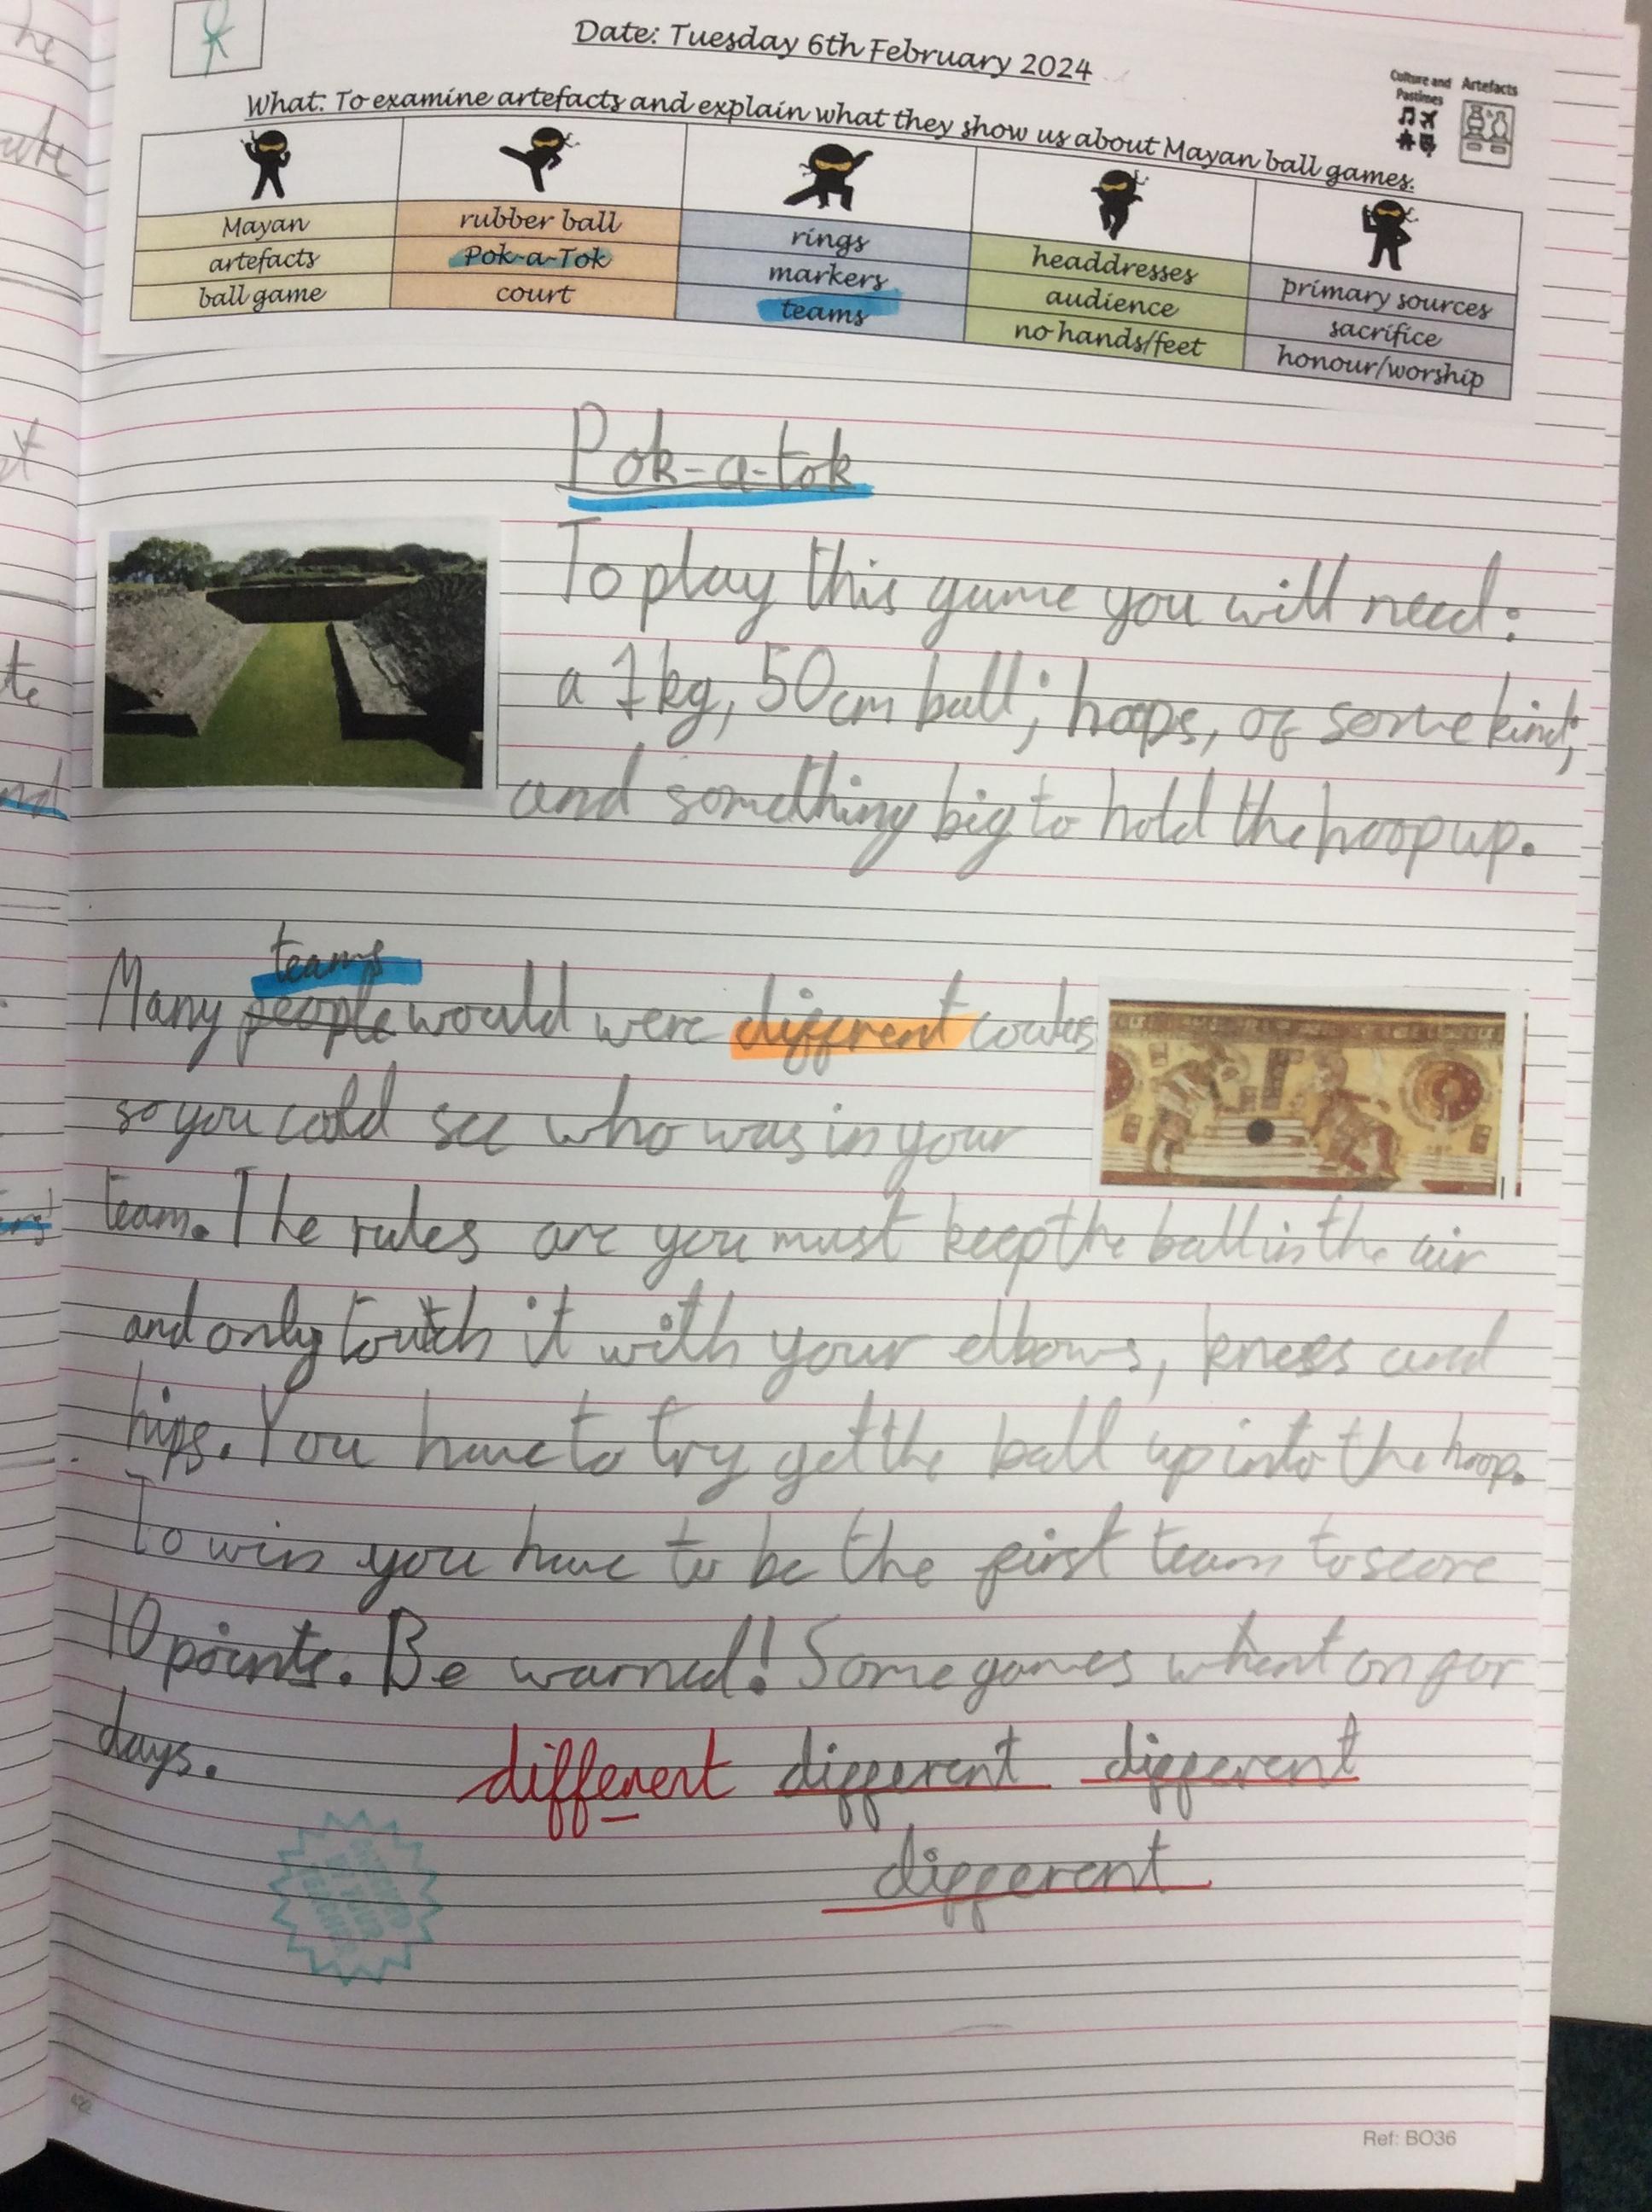 Date: Tuesday 6th February 2024
What: To examine artefacts and explain what they show us about Mayan ball games.
Culture and Pastimes
Artefacts
Mayan
artefacts
ball game
rubber ball
Pok-a-Tok
court
rings
markers
teams
headdresses
audience
no hands/feet
primary sources
sacrifice
honour/worship
Pok-a-tok
To play this game you will need:
a 1kg, 50cm ball; hoops, of some kind;
and something big to hold the hoop up.
teams
Many people would were different
so you cold see who was in your
team. The rules are you must keep the ball in the air
and only toutch it with your elbows, knees and
hips. You have to try get the ball up into the hoop.
To win you have to be the first team to score
10 points. Be warned! Some games whent on for
days.
different different different
different
Ref: BO36